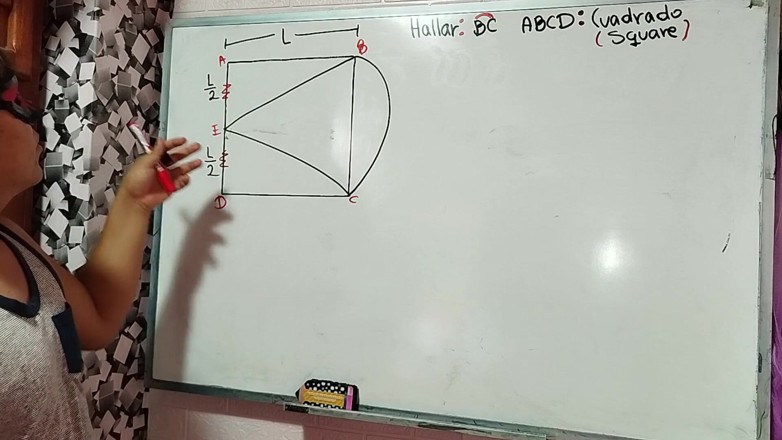 Hallar: BC ABCD: Cuadrado
(Square)
L
A B
L/2
E
L/2
D C